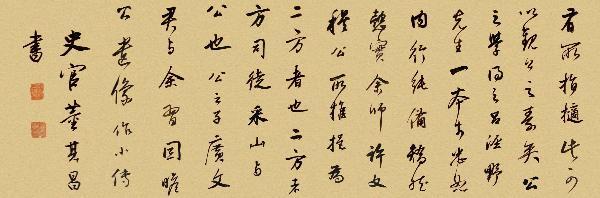 有所指擿此可
以觀公之春矣公
之學得之呂涇野
先生一本於忠恕
內行純備
余師許文
穆公所推
二方者也二方者
方司徒采山与
公也公之子廣文
君与余習因瞻
公遺像作小傳
史官董其昌
書